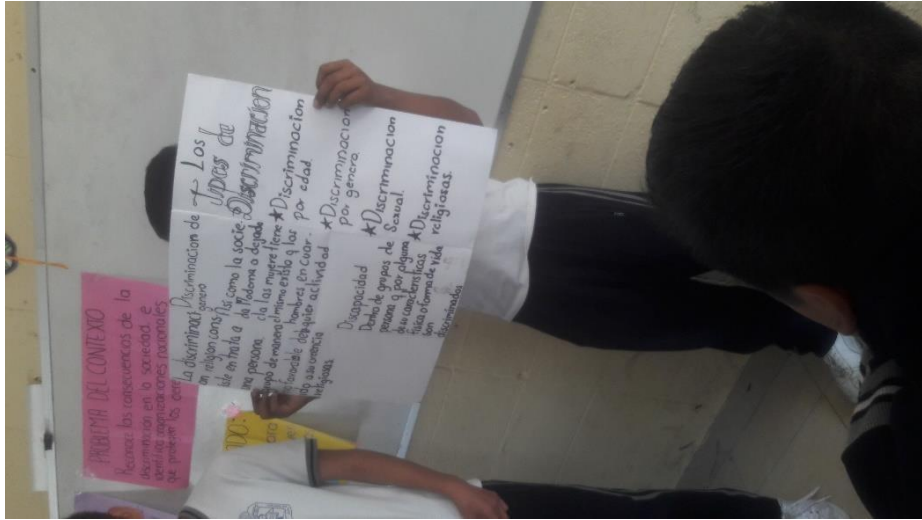 PROBLEMA DEL CONTEXTO
Reconoce las consecuencias de la
discriminación en la sociedad. e
identifica organizaciones nacionales
que protejan los
DO:
La discriminaci
on religion cons
ble en trata a
na persona
upo de manera
sfavorable deb
do a su creencia
religiosa
Discriminacion de
genero
Así como la socie
da moderna a dejado
cla las mujere tiene
el mismo exísto q los
hombres en cuar.
quier actividad
Discapacidad
Dentro de grupos de
persona q por alguna
de su características
fisica o forma de vida
son
discriminados
+ Los
Tipos de
Discriminacion
★Discriminacion
por edad.
★Discriminacion
por genero
★Discriminacion
Sexual.
★Discriminacion
religiosas.